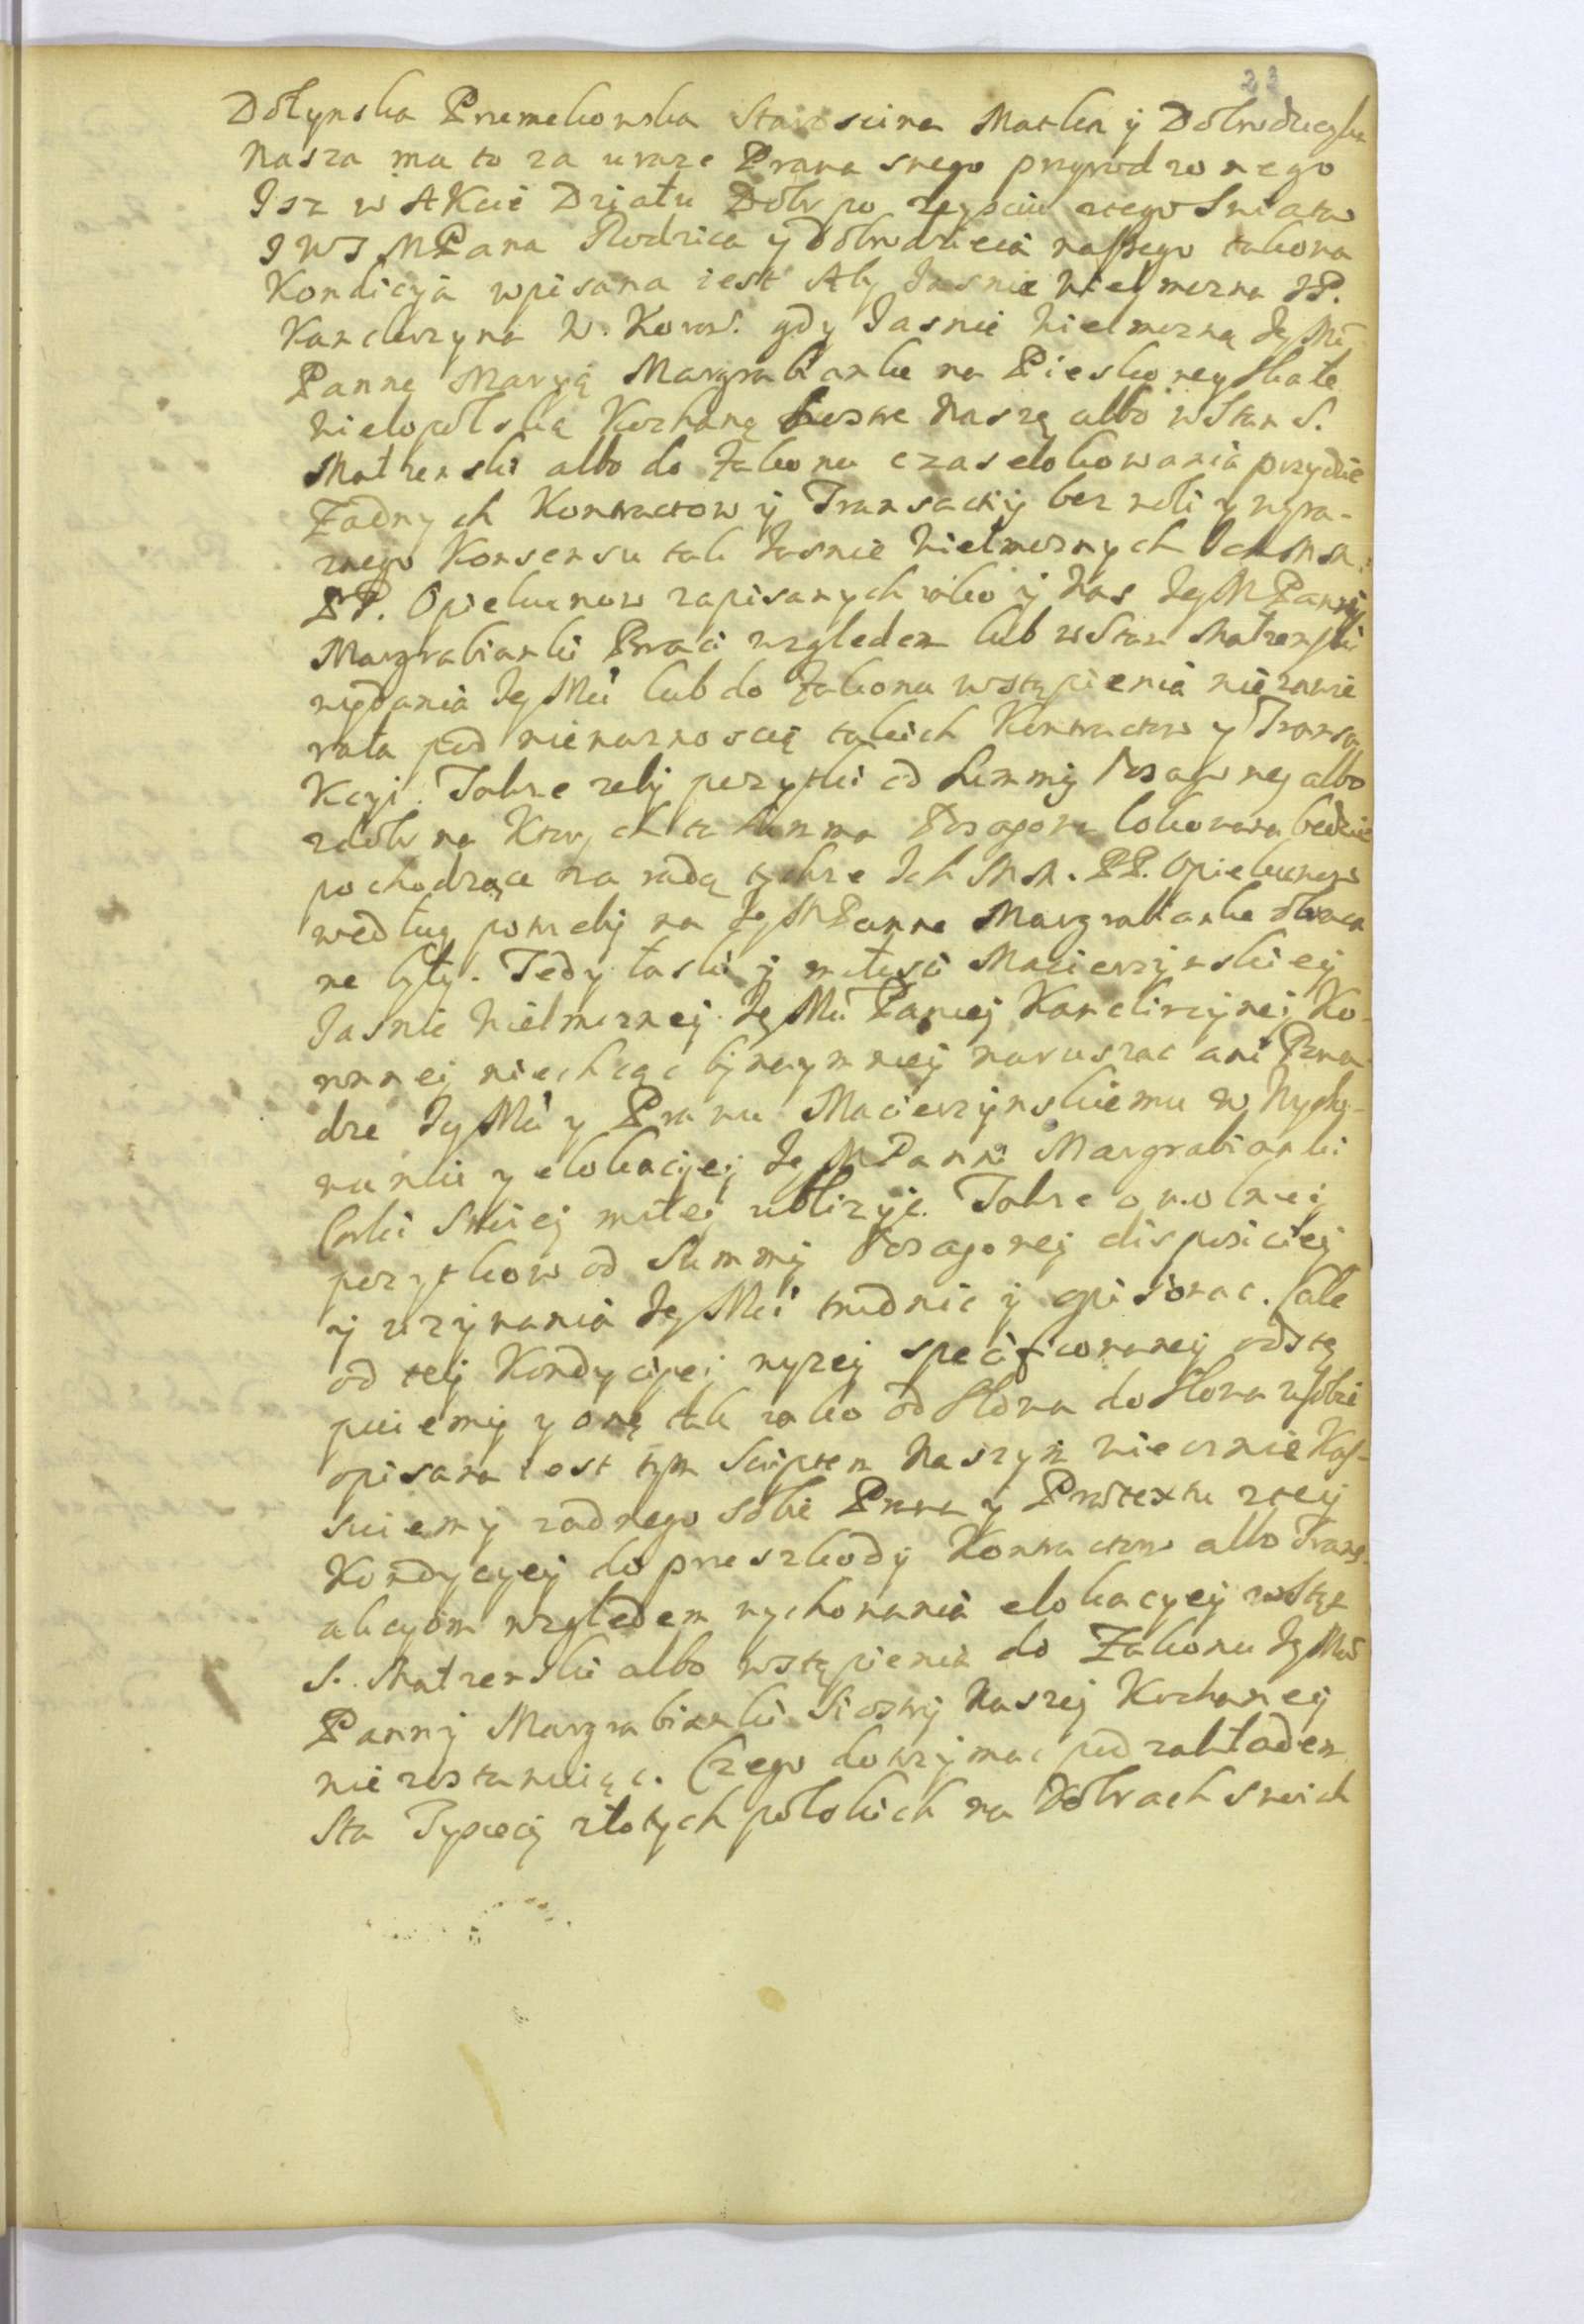 23
Dolynska Premekowska Staroscina Matka y Dobrodzieyka
Nasza ma to za uraze Prawa swego przyrodzonego
Isz w AKcie Działu Dobr po zeysciu z tego Swiata
J W J M Pana Rodzica y Dobrodzieia naszego takowa
Kondicyja wpisana iest Aby Jasnie Wielmozna JP.
Kanclerzyna W. Koron. gdy Jasnie Wielmozną JeyMci
Pannę Maryą Margrabianke na Pieskowey Skale
Wielopolską Kochaną Siostre Naszą albo w Stan S.
Małzenski albo do Zakonu czas elokowania przydzie
Zadnych Kontractow y Transactij bez woli y wyra-
znego Konsensu tak Jasnie Wielmoznych Ich M M.
PP. Opiekunow zapisanych iako y Nas Jey M Panny
Margrabianki Braci wzgledem lub w Stan Małzenski
wydania JeyMci lub do Zakonu wstąpienia nie zawie
rała pod niewaznoscią takich Kontractow y Transa
Kcyi. Takze zeby pozytki od Summy Posagowey albo
z dobr na Ktorych ta Summa Posagowa lokowana bedzie
pochodzące za radą tychze Ich M M. PP. Opiekunow
według potrzeby na Jey M Panne Margrabianke obraca
ne były. Tedy łaski y miłosci Macierzynskiey
Jasnie Wielmozney JeyMci Paniey Kanclirzyney Ko-
ronney niechcąc bynaymniey naruszac ani Powa-
dze JeyMci y Prawu Macierzynskiemu w Wycho-
waniu y elokacyey Jey M Panny Margrabianki
Corki Swoiey miłey ublizyc. Takze o wolney
pozytkow od Summy Posagowey disposiciey
y uzywania JeyMci trudnic y opisowac. Cale
od tey Kondycyey wyzey specificowaney odstę
puiemy y oną tak iako od Słowa do Słowa w sobie
opisana iest tym Scriptem Naszym wiecznie Kas-
suiemy zadnego sobie Prawa y Protextu z tey
Kondycyey do przeszkody Kontractow albo Trans-
akcyom wzgledem wychowania elokacyey w Stan
S. Małzenski albo wstąpienia do Zakonu JeyMci
Panny Margrabianki Siostry Naszey Kochaney
nie zostawuiąc. Czego dotrzymac pod zakładem
Sta Tysiecy złotych polskich na Dobrach swoich